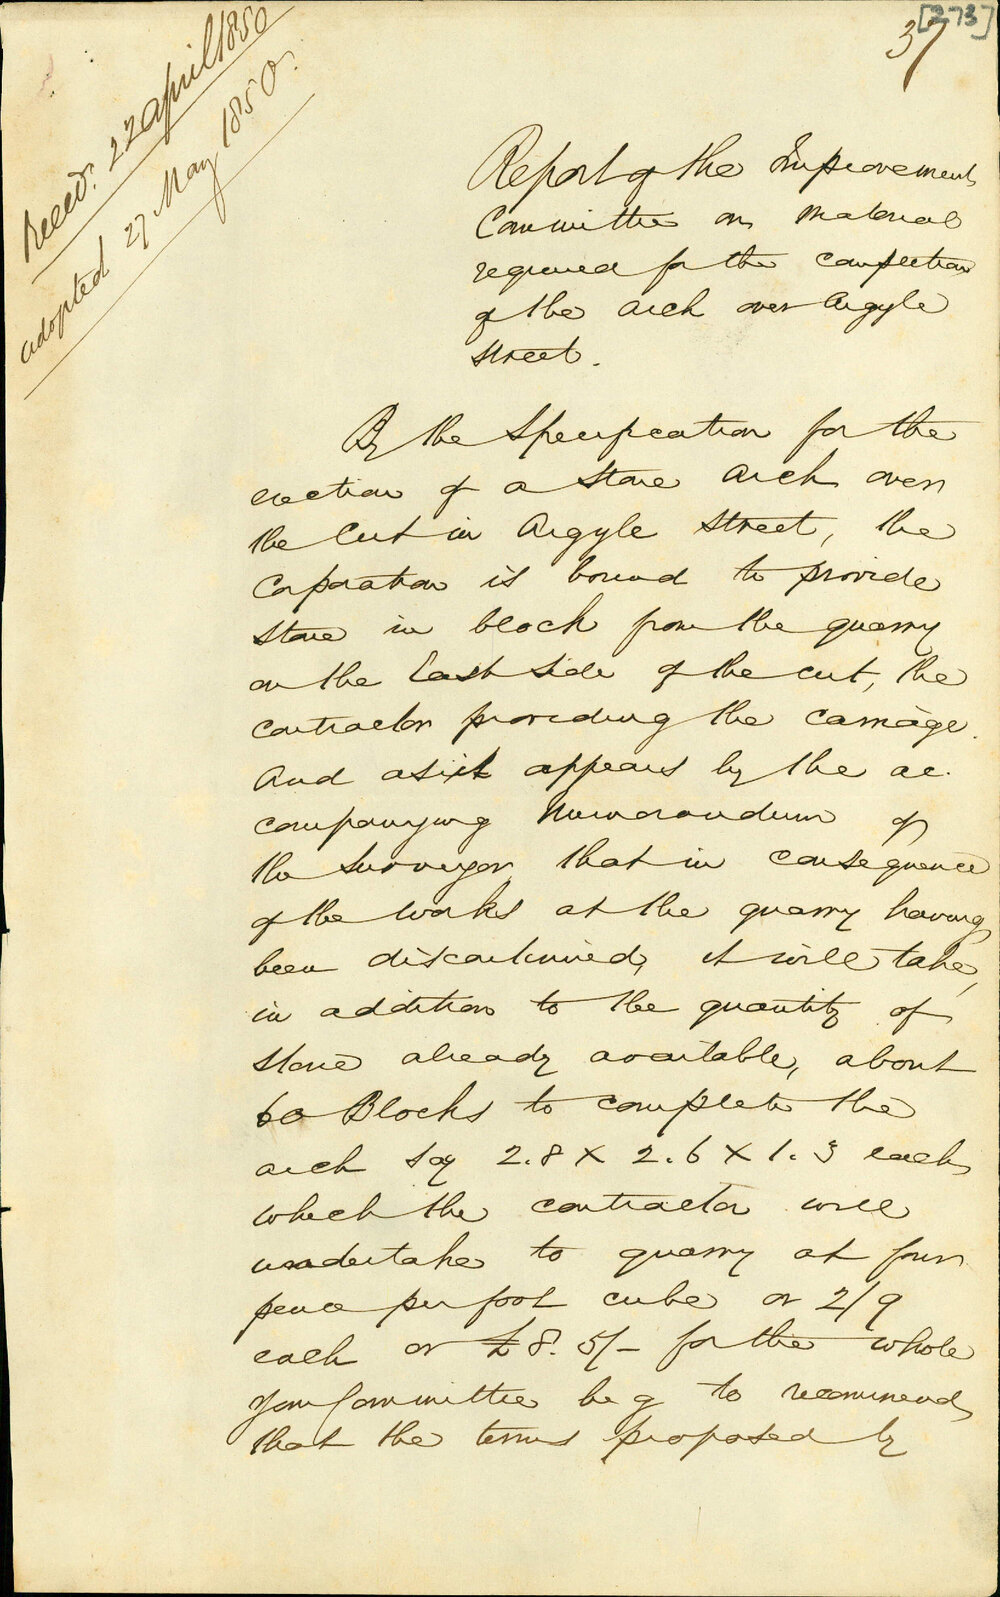 [273]
37
Recd. 22 April 1850
adopted 27 May 1850.
Report of the Improvement
Committee on Material
required for the completion
of the arch over Argyle
Street.
By the Specification for the
erection of a Stone Arch over
the Cut in Argyle Street, the
Corporation is bound to provide
Stone in block from the quarry
on the East Side of the cut, the
contractor providing the carriage.
And as it appears by the ac.
companying Memorandum of
the Surveyor that in consequence
of the works at the quarry having
been discontinued, it will take,
in addition to the quantity of
Stone already available, about
60 Blocks to complete the
arch say 2.8 x 2.6 x 1.3 each
which the contractor will
undertake to quarry at four
pence per foot cube or 2/9
each or £8.5/- for the whole
Your Committee beg to recommend
that the terms proposed by